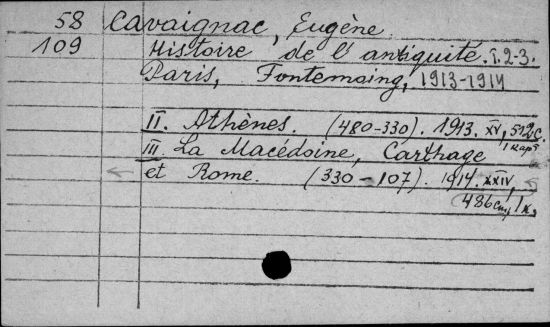 58 Cavaignac, Eugène.
109 Histoire de l'antiquité. T. 2-3.
Paris, Fontemoing, 1913-1914
II. Athènes. (480-330). 1913. XV, 512 с.
1 карт.
III. La Macédoine, Carthage
et Rome. (330-107). 1914. XXIV,
486 стр, 1 к.